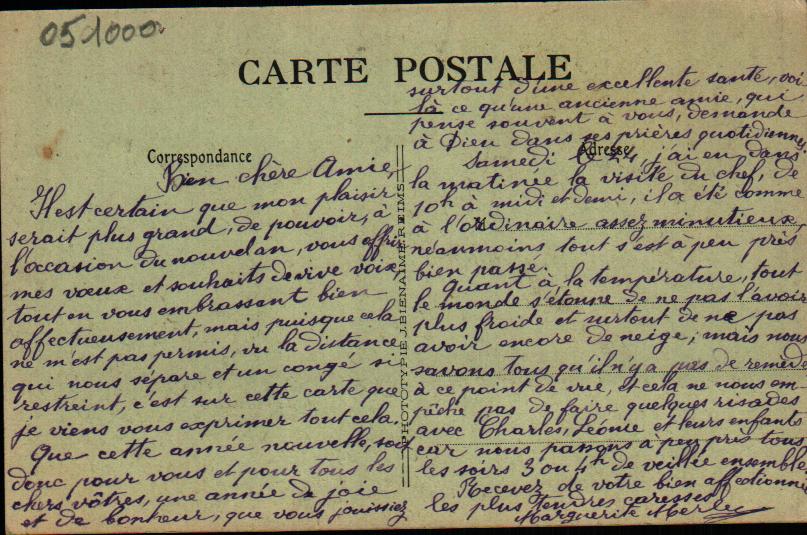 051000
CARTE POSTALE
Correspondance
Bien chère Amie,
Il est certain que mon plaisir
serait plus grand, de pouvoir, à
l'occasion du nouvel an, vous offrir
mes vœux et souhaits de vive voix
tout en vous embrassant bien
affectueusement, mais puisque cela
ne m'est pas permis, vu la distance
qui nous sépare et un congé si
restreint, c'est sur cette carte que
je viens vous exprimer tout cela.
Que cette année nouvelle, soit
donc pour vous et pour tous les
chers vôtres, une année de joie
et de bonheur, que vous jouissiez
PHOTOTYPIE J. BIENAIMÉ REIMS
Adresse
surtout d'une excellente santé, voi
là ce qu'une ancienne amie, qui
pense souvent à vous, demande
à Dieu dans ses prières quotidiennes.
Samedi le 24, j'ai eu dans
la matinée la visite du chef, de
10h à midi et demi, il a été comme
à l'ordinaire assez minutieux,
néanmoins tout s'est à peu près
bien passé.
Quant à la température, tout
le monde s'étonne de ne pas l'avoir
plus froide et surtout de ne pas
avoir encore de neige; mais nous
savons tous qu'il n'y a pas de remède
à ce point de vue, et cela ne nous em
pêche pas de faire quelques risades
avec Charles, Léonie et leurs enfants
car nous passons à peu près tous
les soirs 3 ou 4h de veillée ensemble
Recevez de votre bien affectionnée
les plus tendres caresses.
Marguerite Merley